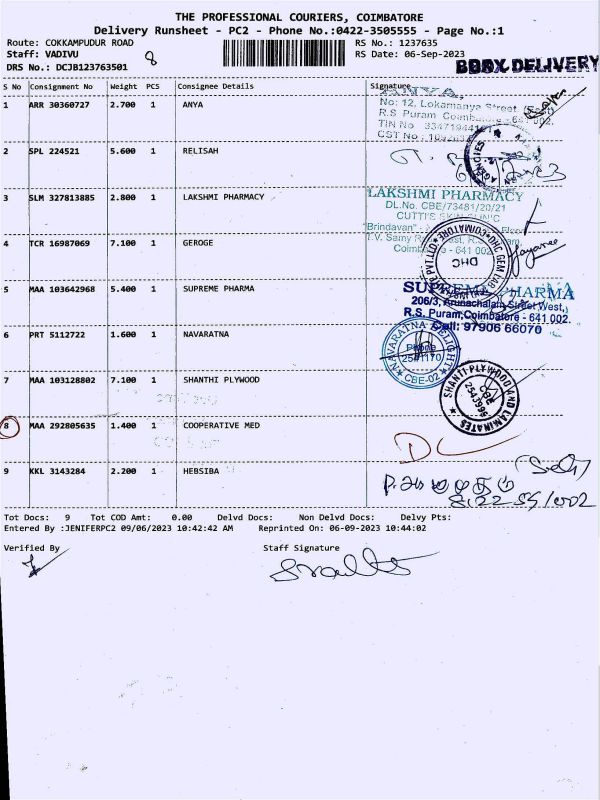 THE PROFESSIONAL COURIERS, COIMBATORE
Delivery Runsheet - PC2 - Phone No.:0422-3505555 - Page No.:1
Route: COKKAMPUDUR ROAD
RS No.: 1237635
Staff: VADIVU
8
RS Date: 06-Sep-2023
DRS No.: DCJB123763501
BBBX DELIVERY
S No Consignment No Weight PCS Consignee Details Signature
1 ARR 30360727 2.700 1 ANYA
ANYA.
No: 12, Lokamanya Street
R.S Puram Coimbatore - 641 002.
TIN No
CST No
2 SPL 224521 5.600 1 RELISAH
AGENCIES
3 SLM 327813885 2.800 1 LAKSHMI PHARMACY
LAKSHMI PHARMACY
DL.No. CBE/73481/20/21
CUTTI'S SKIN CLINIC
"Brindavan" -
T.V. Samy
Coimbatore - 641 002
4 TCR 16987069 7.100 1 GEROGE
DHC GEM LAB
DHC
5 MAA 103642968 5.400 1 SUPREME PHARMA
SUPREME PHARMA
206/3, Arunachalam Street West,
R.S. Puram, Coimbatore - 641 002.
Cell: 97906 66070
6 PRT 5112722 1.600 1 NAVARATNA
NAVARATNA DELIGHT
Phone
2541170
CBE-02
7 MAA 103128802 7.100 1 SHANTHI PLYWOOD
SHANTI PLYWOOD AND LAMINATES
CBE
8 MAA 292805635 1.400 1 COOPERATIVE MED
DC
9 KKL 3143284 2.200 1 HEBSIBA
Tot Docs: 9 Tot COD Amt: 0.00 Delvd Docs: Non Delvd Docs: Delvy Pts:
Entered By :JENIFERPC2 09/06/2023 10:42:42 AM Reprinted On: 06-09-2023 10:44:02
Verified By
Staff Signature